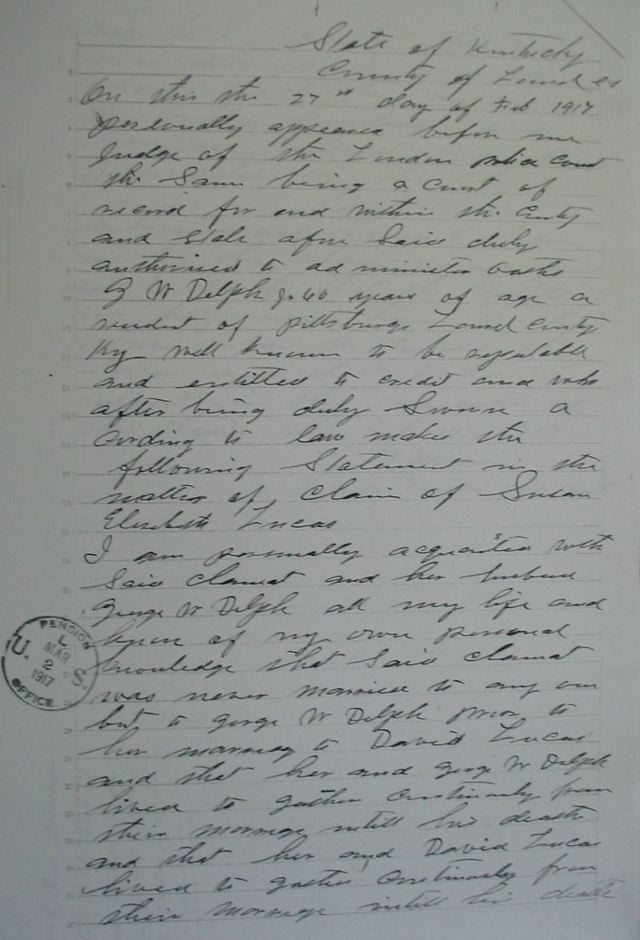 State of Kentucky
County of Laurel
On this the 27th day of Feb 1917
personally appeared before me
Judge of the London police court
the Same being a Court of
record for and within the County
and State afore Said duly
authorised to administer oaths
G W Delph Jr 60 years of age a
resident of Pittsburg Laurel County
Ky well known to be reputable
and entitled to credit and who
after being duly Sworn a
cording to law makes the
following Statement in the
matter of claim of Susan
Elizabeth Lucas
I am personally acquainted with
Said clamat and her husband
George W Delph all my life and
know of my own personal
knowledge that Said clamat
was never married to any one
but to George W Delph prior to
her marriag to David Lucas
and that her and George W Delph
lived to gather continuously from
their marriage untill his death
and that her and David Lucas
lived to gather continuously from
their marriage untill his death
U. S. PENSION OFFICE
MAR
2
1917